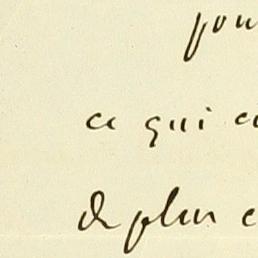 pou
ce qui e
de plus e